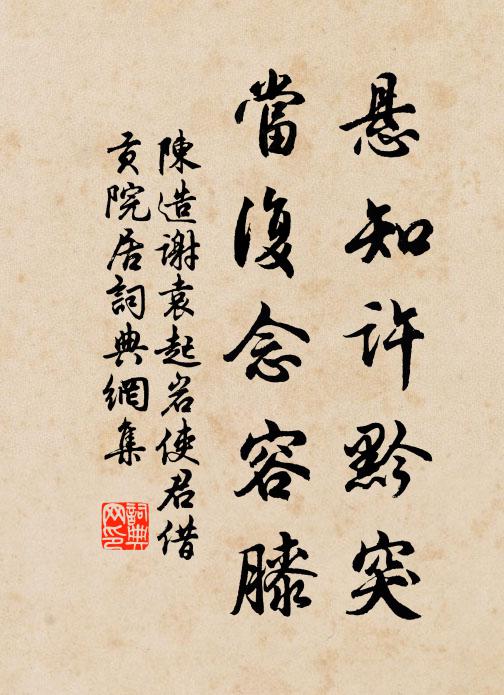 悬知许黔突
當復念容膝
陳造谢袁起岩使君借
贡院居詞典網集
詞典
网印